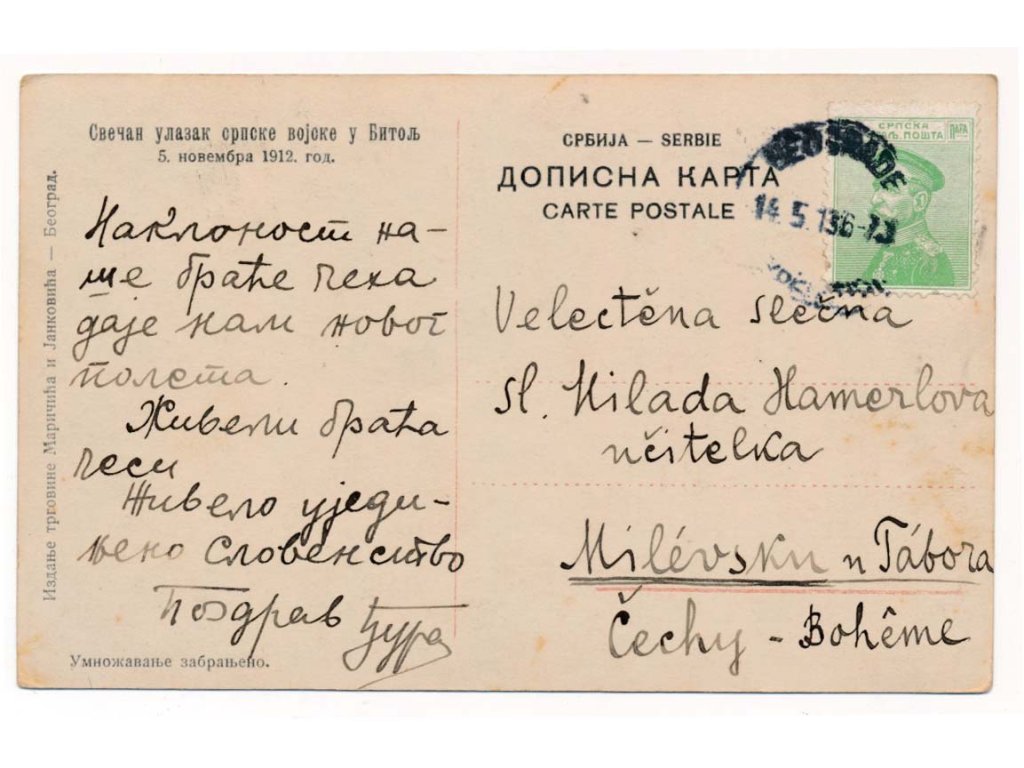 Свечан улазак српске војске у Битољ
5. новембра 1912. год.
Издање трговине Маричића и Јанковића — Београд.
Наклоност на-
ше браће Чеха
даје нам новог
полета.
Живели браћа
чеси
Живело уједи-
њено Словенство
Поздрав Ђура
Умножавање забрањено.
СРБИЈА — SERBIE
ДОПИСНА КАРТА
CARTE POSTALE
СРПСКА
ПОШТА
ПАРА
BEOGRADE
14.5.13
Velectěna slečna
sl. Milada Hamerlova
učitelka
Milévsku u Tábora
Čechy - Bohême